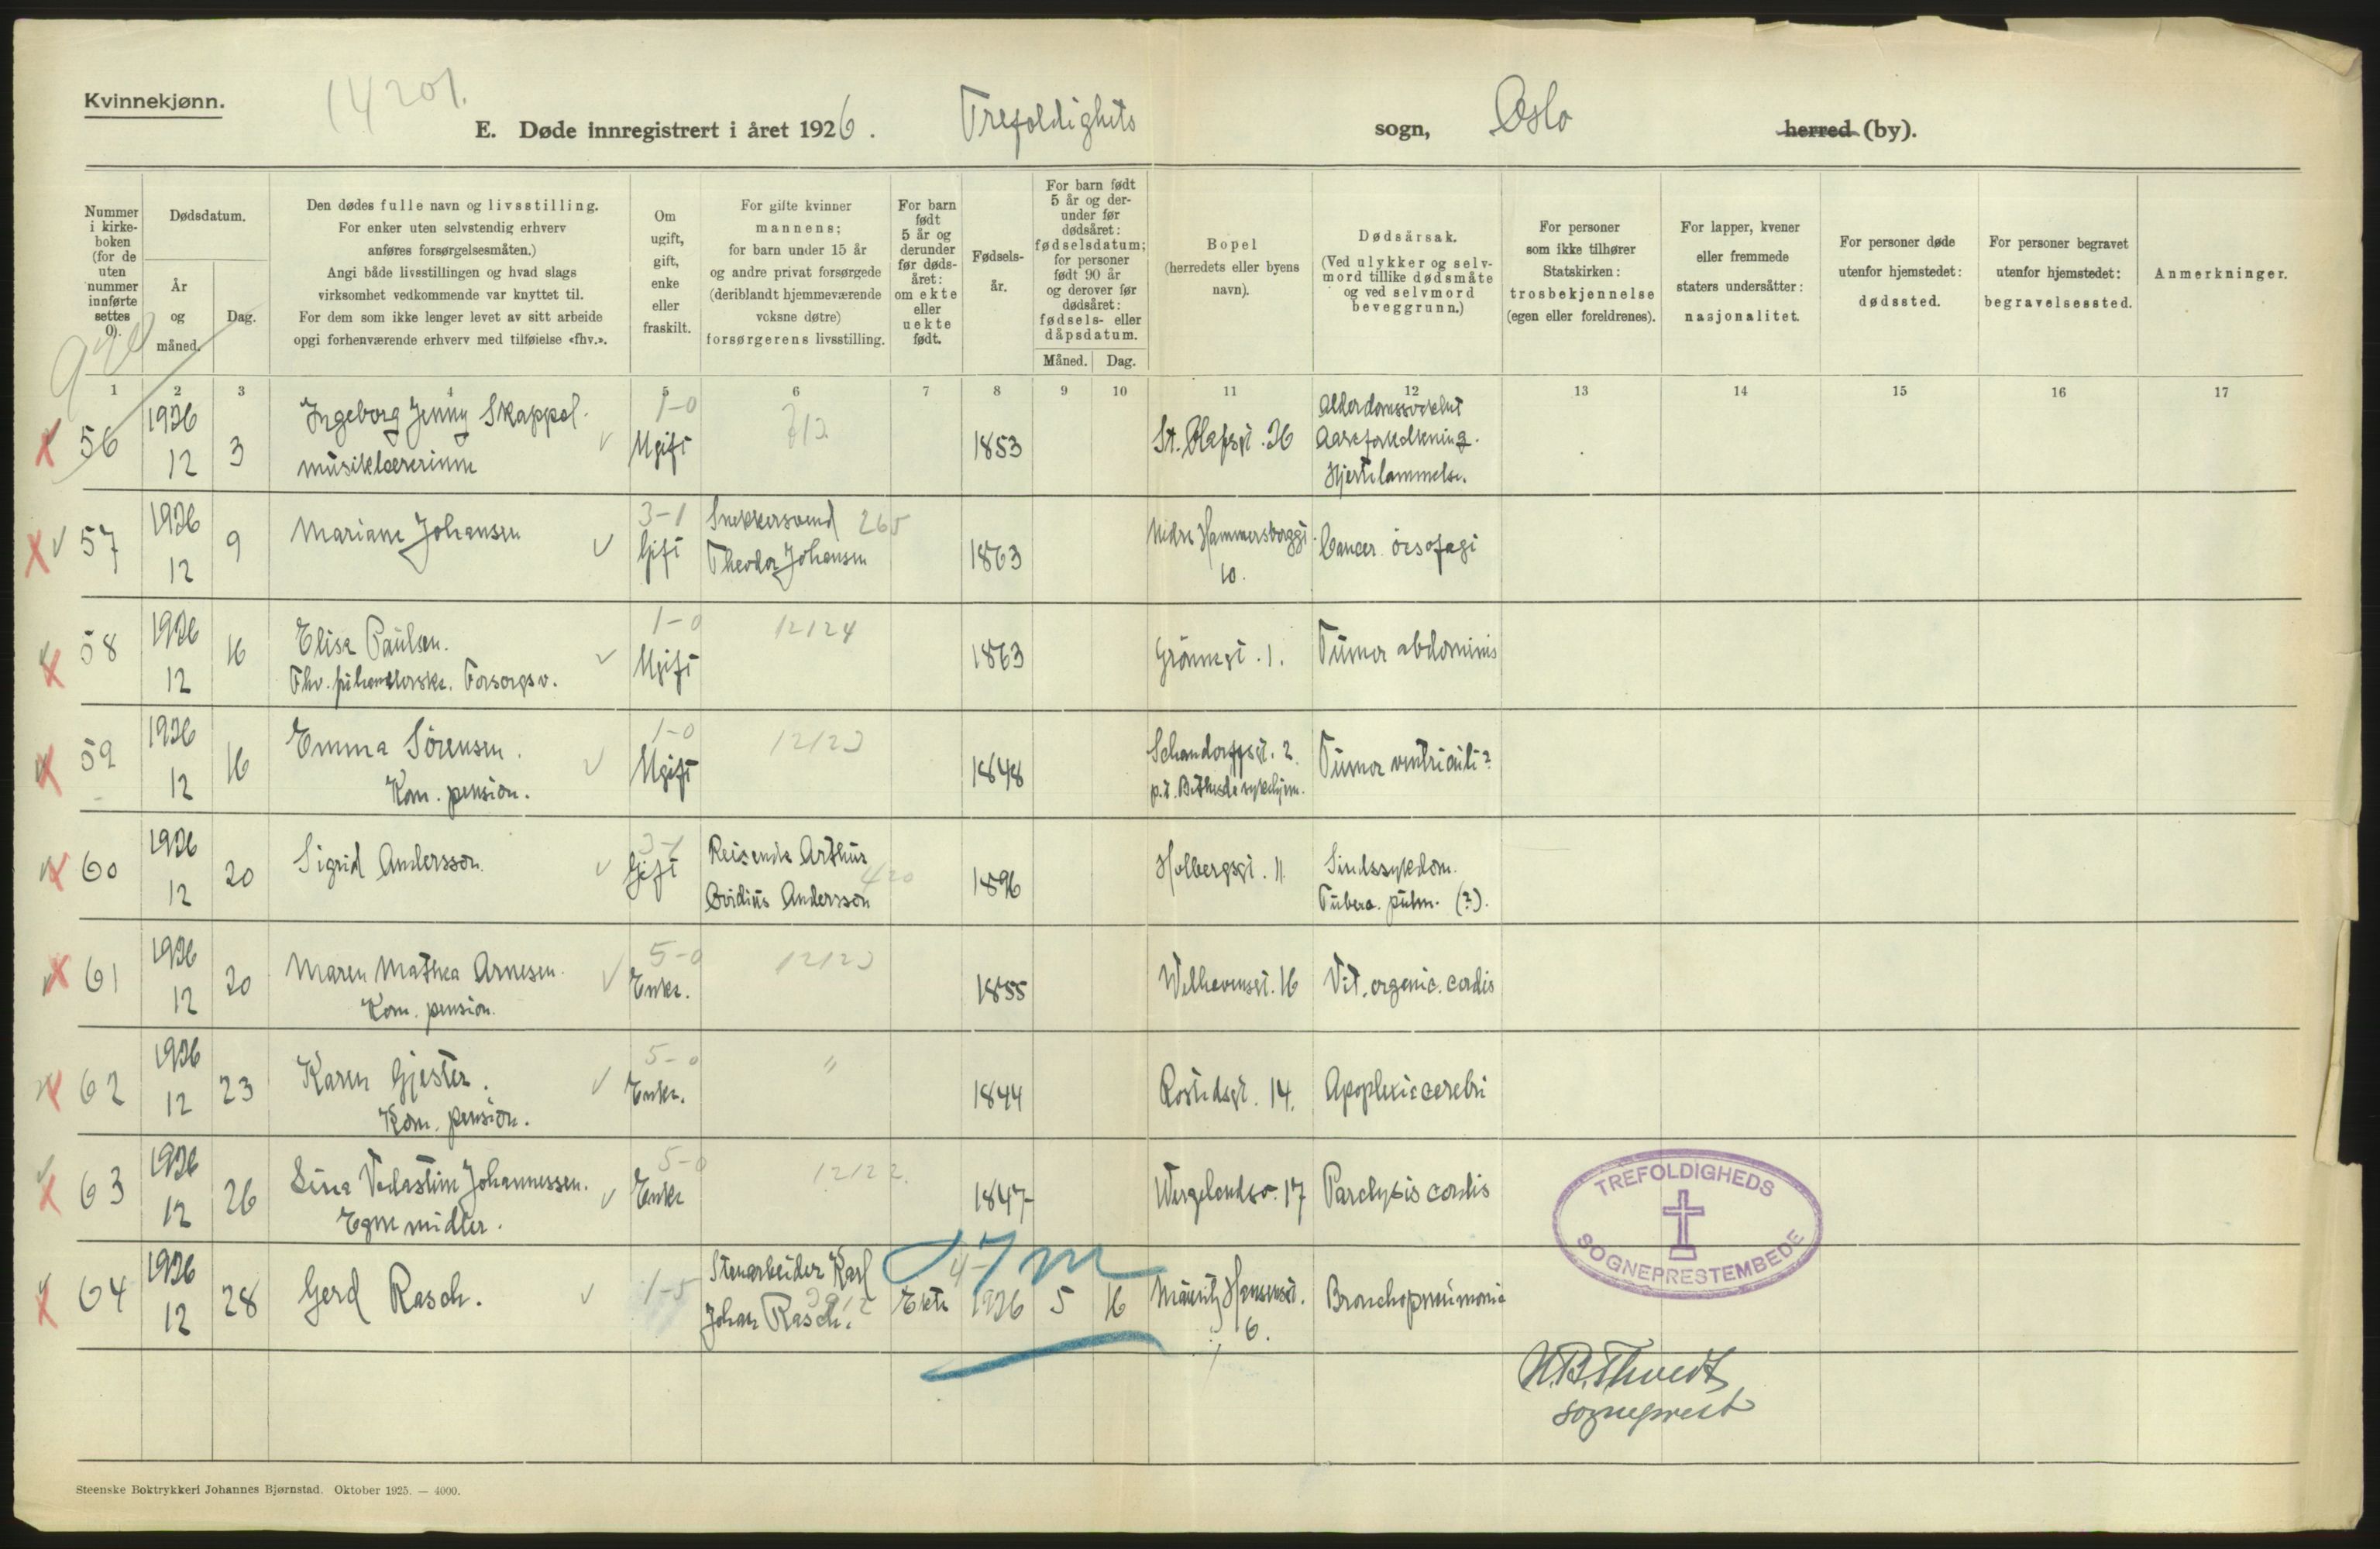 Kvinnekjønn.
14201.
E. Døde innregistrert i året 1926. Trefoldighets sogn, Oslo herred (by).
Nummer i kirke-boken (for de uten nummer innførte settes 0).
Dødsdatum.
År og måned.
Dag.
Den dødes fulle navn og livsstilling.
For enker uten selvstendig erhverv
anføres forsørgelsesmåten.)
Angi både livsstillingen og hvad slags
virksomhet vedkommende var knyttet til.
For dem som ikke lenger levet av sitt arbeide
opgi forhenværende erhverv med tilføielse «fhv.».
Om ugift, gift, enke eller fraskilt.
For gifte kvinner
mannens;
for barn under 15 år
og andre privat forsørgede
(deriblandt hjemmeværende
voksne døtre)
forsørgerens livsstilling.
For barn født 5 år og derunder før døds-året: om ekte eller uekte født.
Fødsels-år.
For barn født
5 år og der-
under før
dødsåret:
fødselsdatum;
for personer
født 90 år
og derover før
dødsåret:
fødsels- eller
dåpsdatum.
Måned. Dag.
Bopel
(herredets eller byens
navn).
Dødsårsak.
(Ved ulykker og selv-
mord tillike dødsmåte
og ved selvmord
beveggrunn.)
For personer
som ikke tilhører
Statskirken:
trosbekjennelse
(egen eller foreldrenes).
For lapper, kvener
eller fremmede
staters undersåtter:
nasjonalitet.
For personer døde
utenfor hjemstedet:
dødssted.
For personer begravet
utenfor hjemstedet:
begravelsessted.
Anmerkninger.
1 2 3 4 5 6 7 8 9 10 11 12 13 14 15 16 17
56 1926 12 3 Ingeborg Jenny Skappel.
musiklærerinne
1-0 Ugift 1853 St. Olafsgt. 26
Alderdomssvekket
Aareforkalkning.
Hjertelammelse.
57 1926 12 9 Mariane Johansen
3-1 Gift Snekkersvend 265
Theodor Johansen
1863 Nedre Hammersborggt.
10.
Cancer oesofagi
58 1926 12 16 Elise Paulsen.
Fhv. Forsorgsv.
1-0 Ugift 12124 1863 Grönnegt. 1. Tumor abdominis
59 1926 12 16 Emma Sörensen.
Kom. pension.
1-0 Ugift 12123 1848 Schandorffsgt. 2.
p.t. Bethesda sykehjem.
Tumor ventriculi?
60 1926 12 20 Sigrid Andersson.
3-1 Gift Reisende Arthur
Ovidius Andersson 420
1896 Holbergsgt. 11 Sindssykdom.
Tuberc. pulm. (?).
61 1926 12 20 Maren Mathea Arnesen.
Kom. pension.
5-0 Enke. 12123 1855 Welhavensgt. 16 Vit. organic. cordis
62 1926 12 23 Karen Gjester.
Kom. pension.
5-0 Enke. " 1844 Rostedsgt. 14. Apoplexia cerebri
63 1926 12 26 Johannessen.
Egne midler.
5-0 Enke 12122. 1847 Wergelandsv. 17 Paralysis cordis
64 1926 12 28 Gerd Rasch.
1-5 Stenarbeider Karl
Johan Rasch.
Ekte 1926 5 16 Mauritz Hansensgt.
6.
Bronchopneumonie
TREFOLDIGHEDS
SOGNEPRESTEMBEDE
sogneprest
Steenske Boktrykkeri Johannes Bjørnstad. Oktober 1925. — 4000.